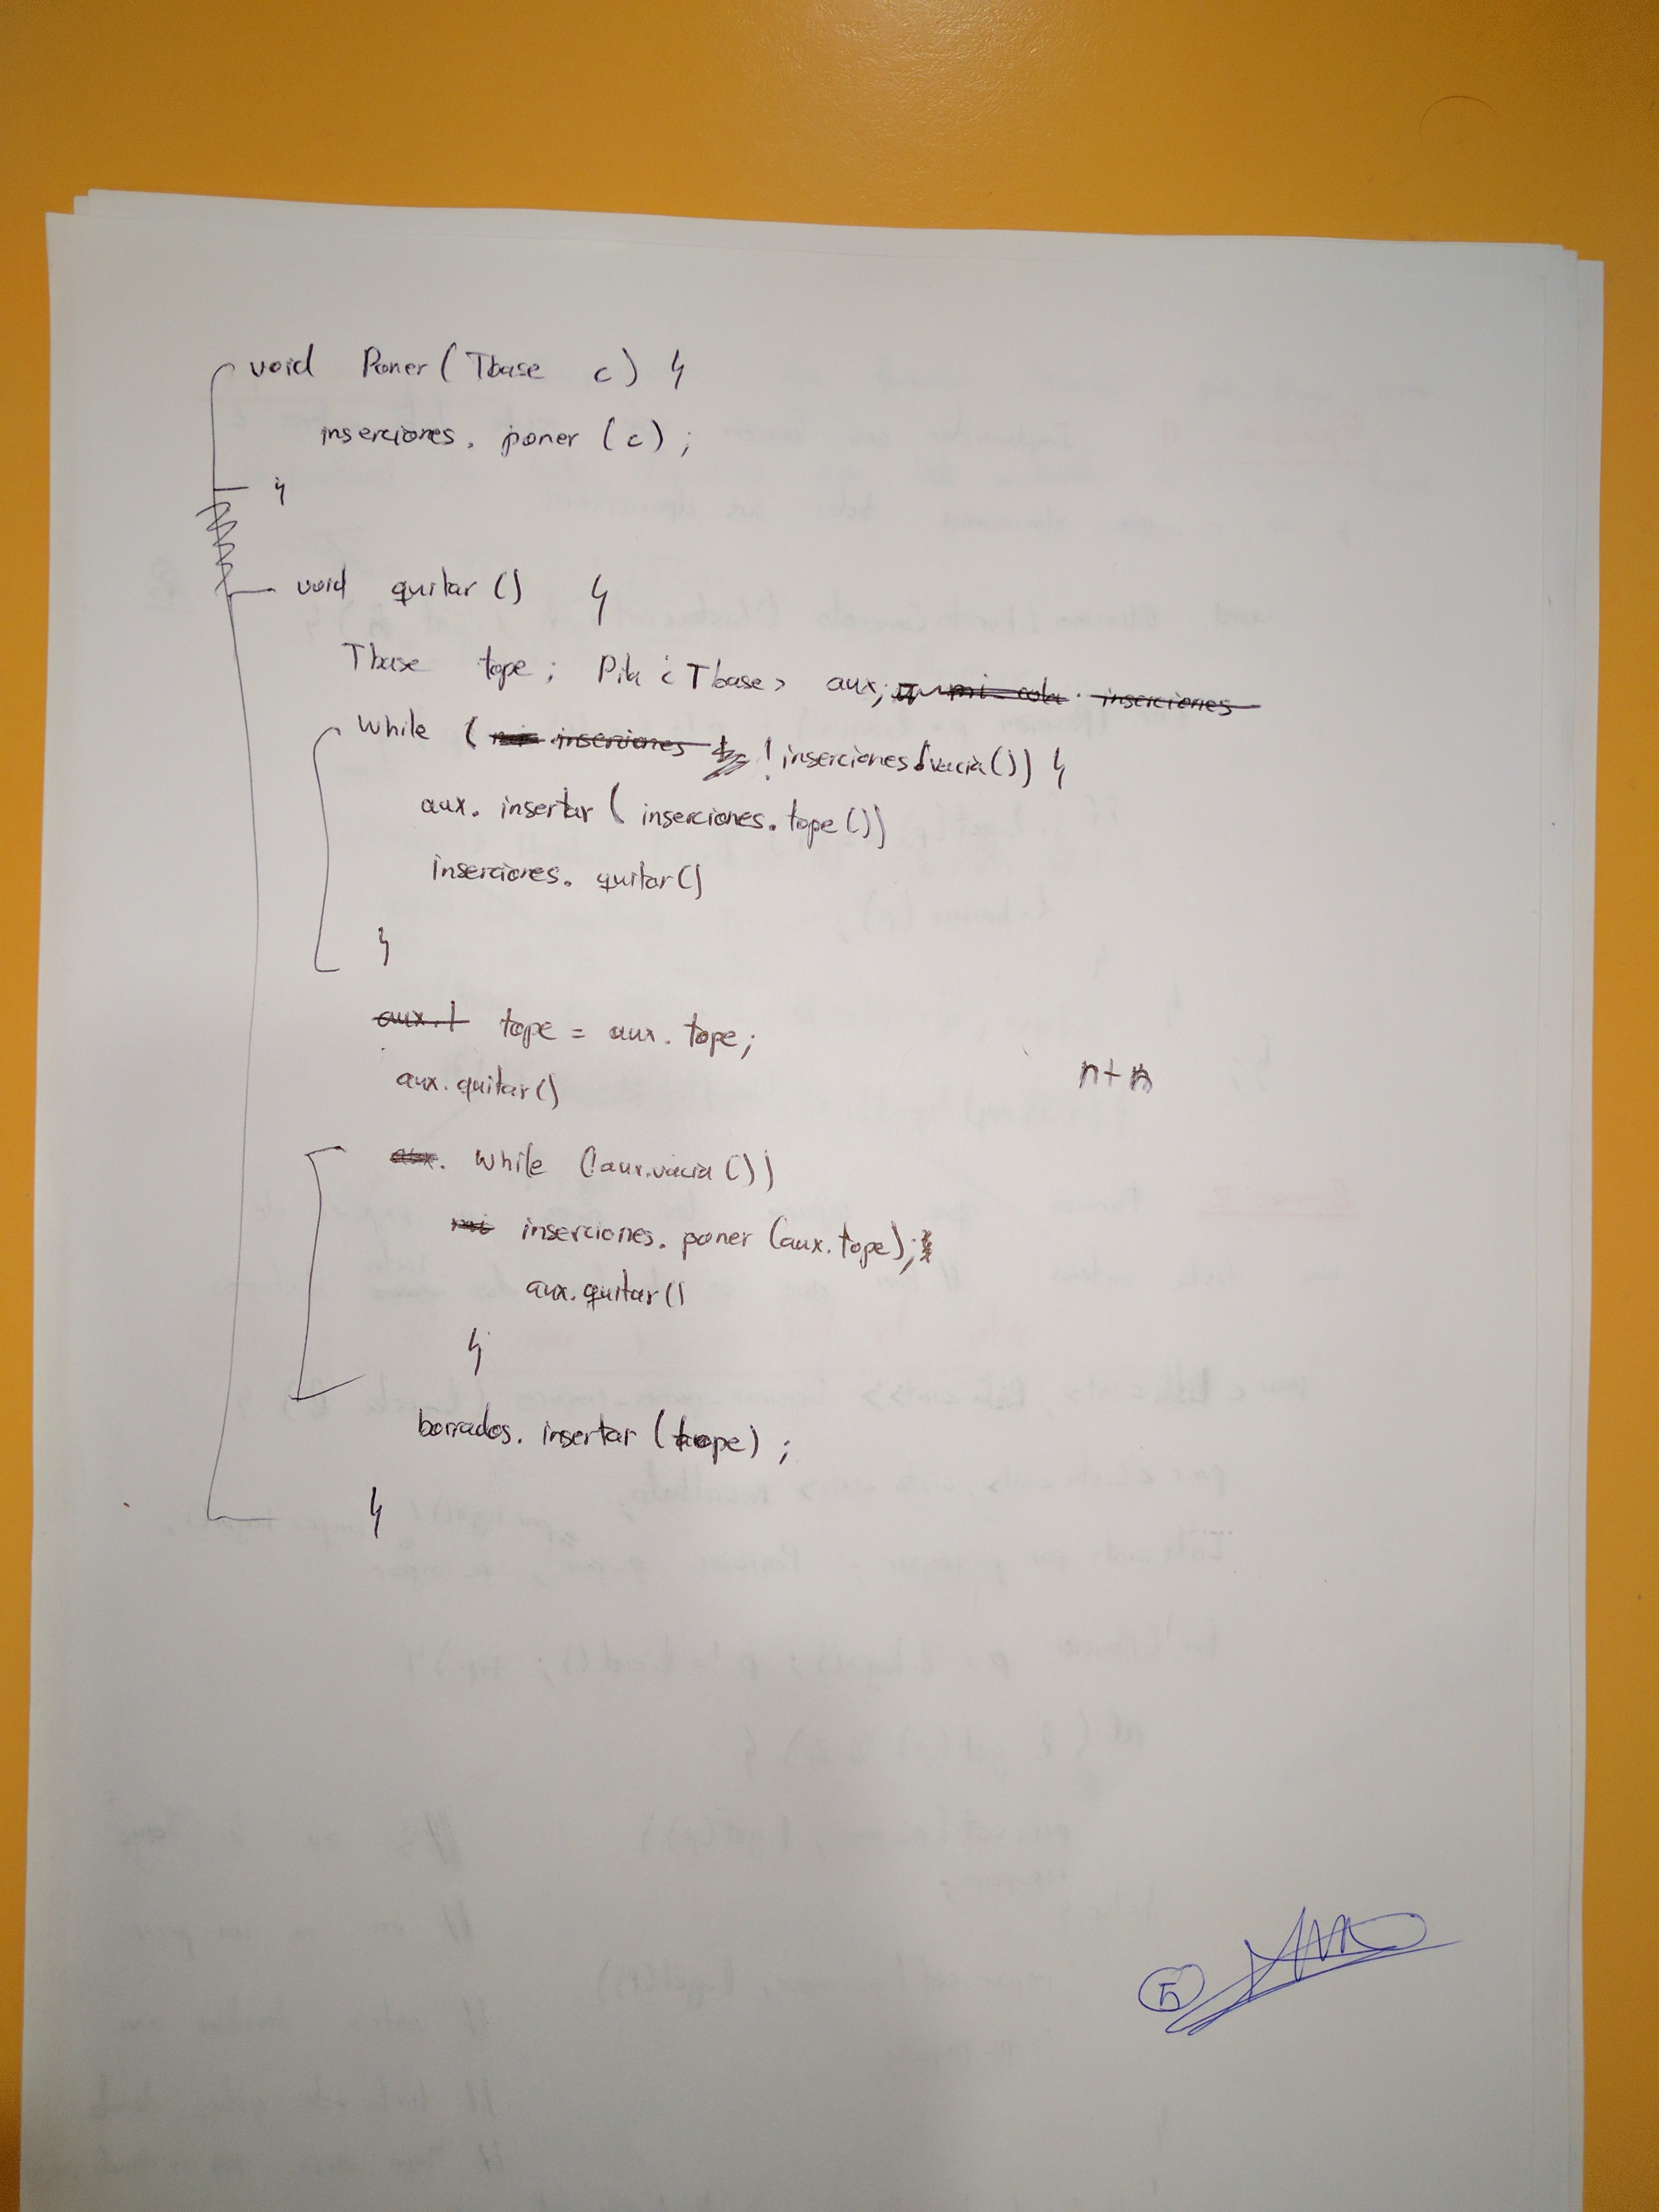 void Poner (Tbase c) {
inserciones. poner (c);
}
void quitar () {
Tbase tope; Pila <Tbase> aux; mi-cola. inserciones
While ( inserciones !inserciones.vacia()) {
aux. insertar ( inserciones. tope ())
inserciones. quitar()
}
aux.t tope = aux. tope;
aux.quitar()
n+n
aux. While (!aux.vacia ())
mi inserciones. poner (aux.tope);
aux.quitar()
}
borrados. insertar (tope);
}
5